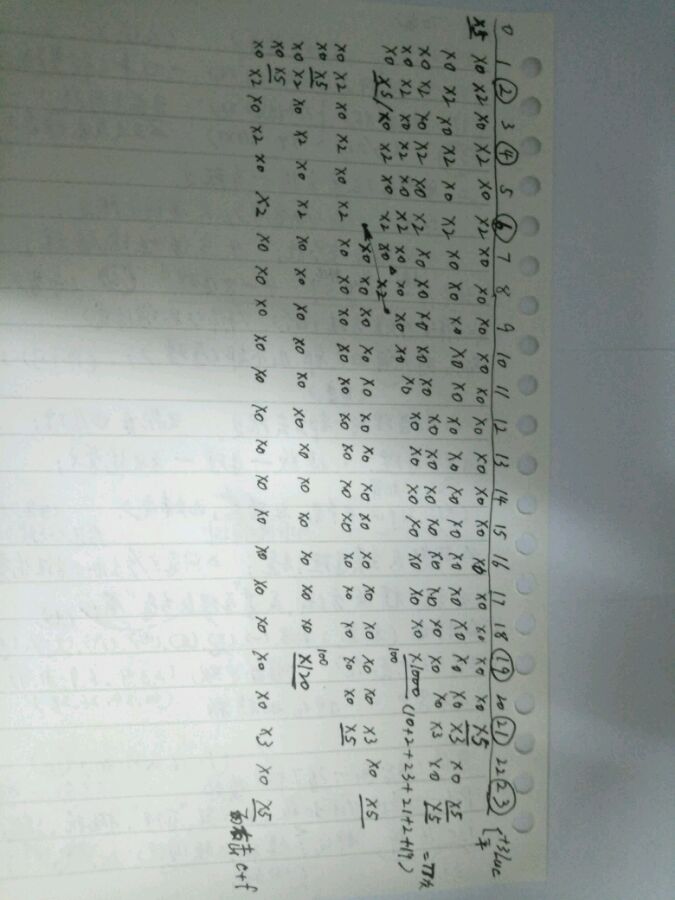 0 1 2 3 4 5 6 7 8 9 10 11 12 13 14 15 16 17 18 19 20 21 22 23
X5 X0 X2 X0 X2 X0 X2 X0 X0 X0 X0 X0 X0 X0 X0 X0 X0 X0 X0 X0 X0 X5
X0 X2 X0 X2 X0 X2 X0 X0 X0 X0 X0 X0 X0 X0 X0 X0 X0 X0 X0 X0 X3 X0 X5
X0 X2 X0 X2 X0 X2 X0 X0 X0 X0 X0 X0 X0 X0 X0 X0 X0 X0 X0 X0 X3 X0 X5
X0 X2 X0 X2 X0 X2 X0 X0 X0 X0 X0 X0 X0 X0 X0 X0 X0 X0 X1000 (10+2+23+21+2+19)
100
X0 X5 / X0 X2 X0 X2 X0 X2
X0 X0 X0 X0 X0 X0 X0 X0 X0 X0 X0 X0 X0 X0 X3 X0 X5
X0 X2 X0 X2 X0 X2 X0 X0 X0 X0 X0 X0 X0 X0 X0 X0 X0 X0 X0 X0 X5
X0 X5
100
X0 X2 X0 X2 X0 X2 X0 X0 X0 X0 X0 X0 X0 X0 X0 X0 X0 X0 X120
X0 X5
X0 X2 X0 X2 X0 X2 X0 X0 X0 X0 X0 X0 X0 X0 X0 X0 X0 X0 X0 X0 X3 X0 X5